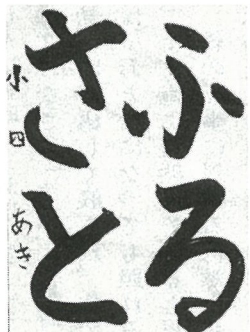 ふる
さと
小四 あき